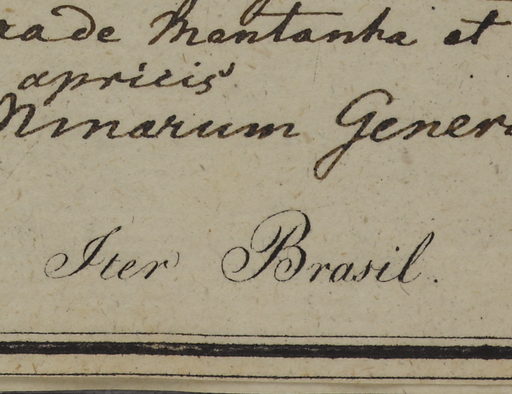 de Montanha et
apricis
Minarum Gener
Iter Brasil.